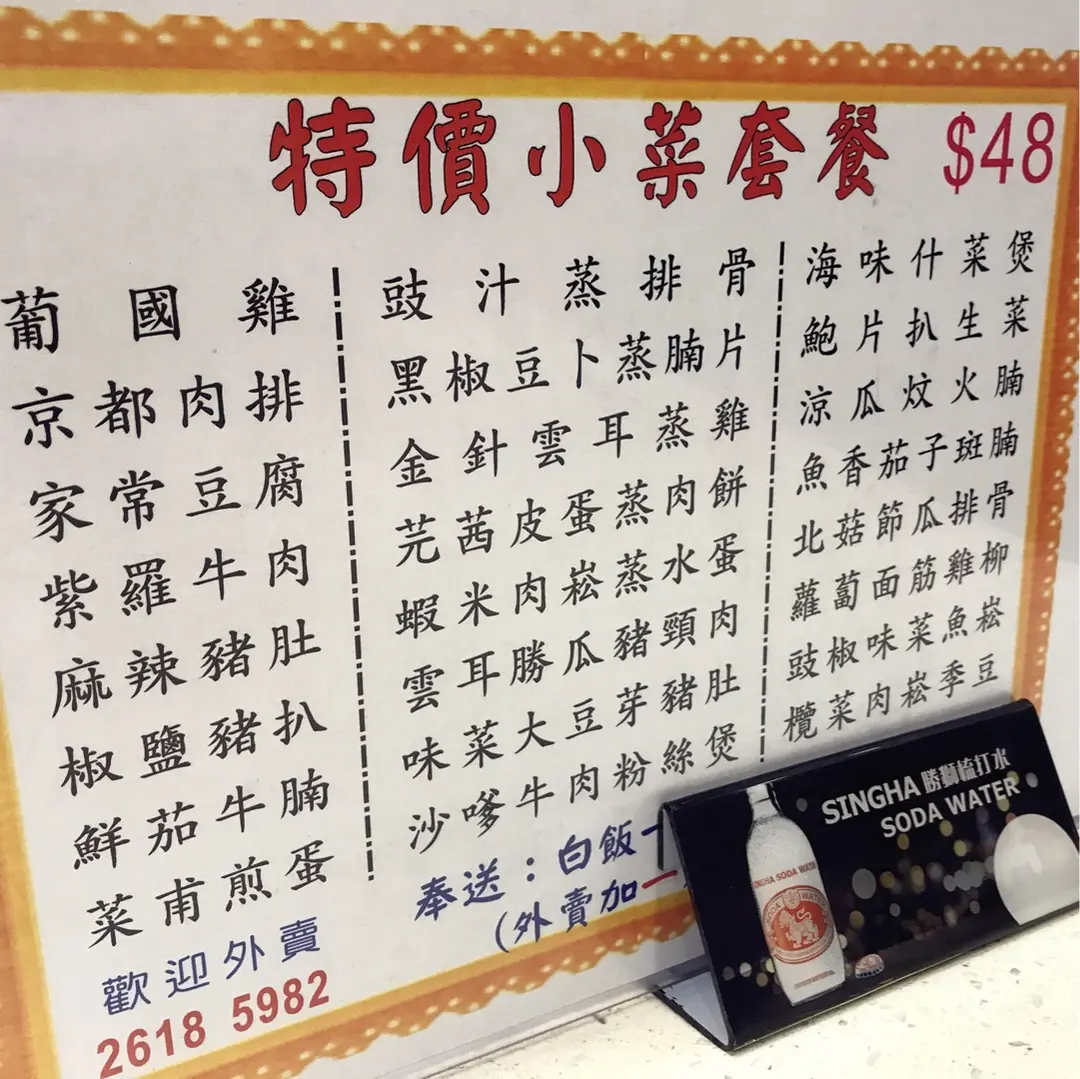 特價小菜套餐 $48
葡國雞
京都肉排
家常豆腐
紫羅牛肉
麻辣豬肚
椒鹽豬扒
鮮茄牛腩
菜甫煎蛋
歡迎外賣
2618 5982
豉汁蒸排骨
黑椒豆卜蒸腩片
金針雲耳蒸雞
芫茜皮蛋蒸肉餅
蝦米肉崧蒸水蛋
雲耳勝瓜豬頸肉
味菜大豆芽豬肚
沙嗲牛肉粉絲煲
奉送：白飯
(外賣加
海味什菜煲
鮑片扒生菜
涼瓜炆火腩
魚香茄子斑腩
北菇節瓜排骨
蘿蔔面筋雞柳
豉椒味菜魚崧
欖菜肉崧季豆
SINGHA 勝獅梳打水
SODA WATER
SINGHA SODA WATER
SODA WATER